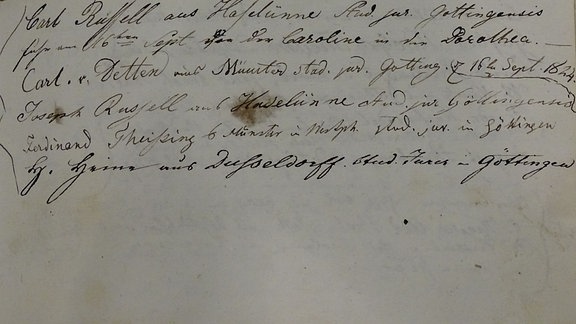 Carl Russell aus Haselünne Stud. jur. Gottingensis
fuhr am 16ten Sept von der Caroline in die Dorothea. —
Carl. v. Detten aus Münster stud. jur. Gotting. 16t. Sept. 1824.
Joseph Russell aus Haselünne stud. jur Göttingensis
Ferdinand Theißing Münster in Westph. stud. jur. in Göttingen
H. Heine aus Dusseldorff. stud. Juris in Göttingen